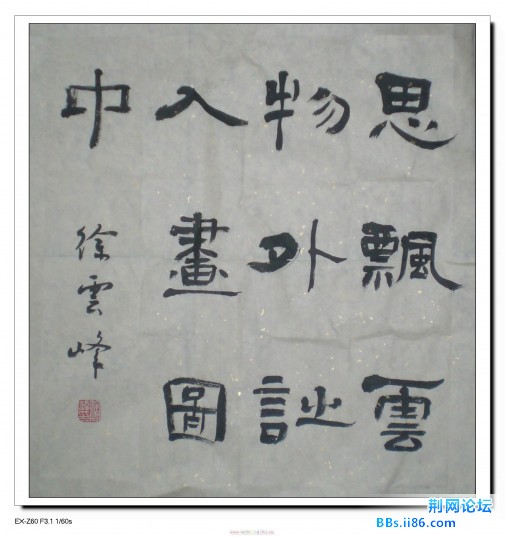 思飄雲
物外詩
入畫圖
中
徐雲峰
EX-Z60 F3.1 1/60s
荆网论坛
BBs.ii86.com